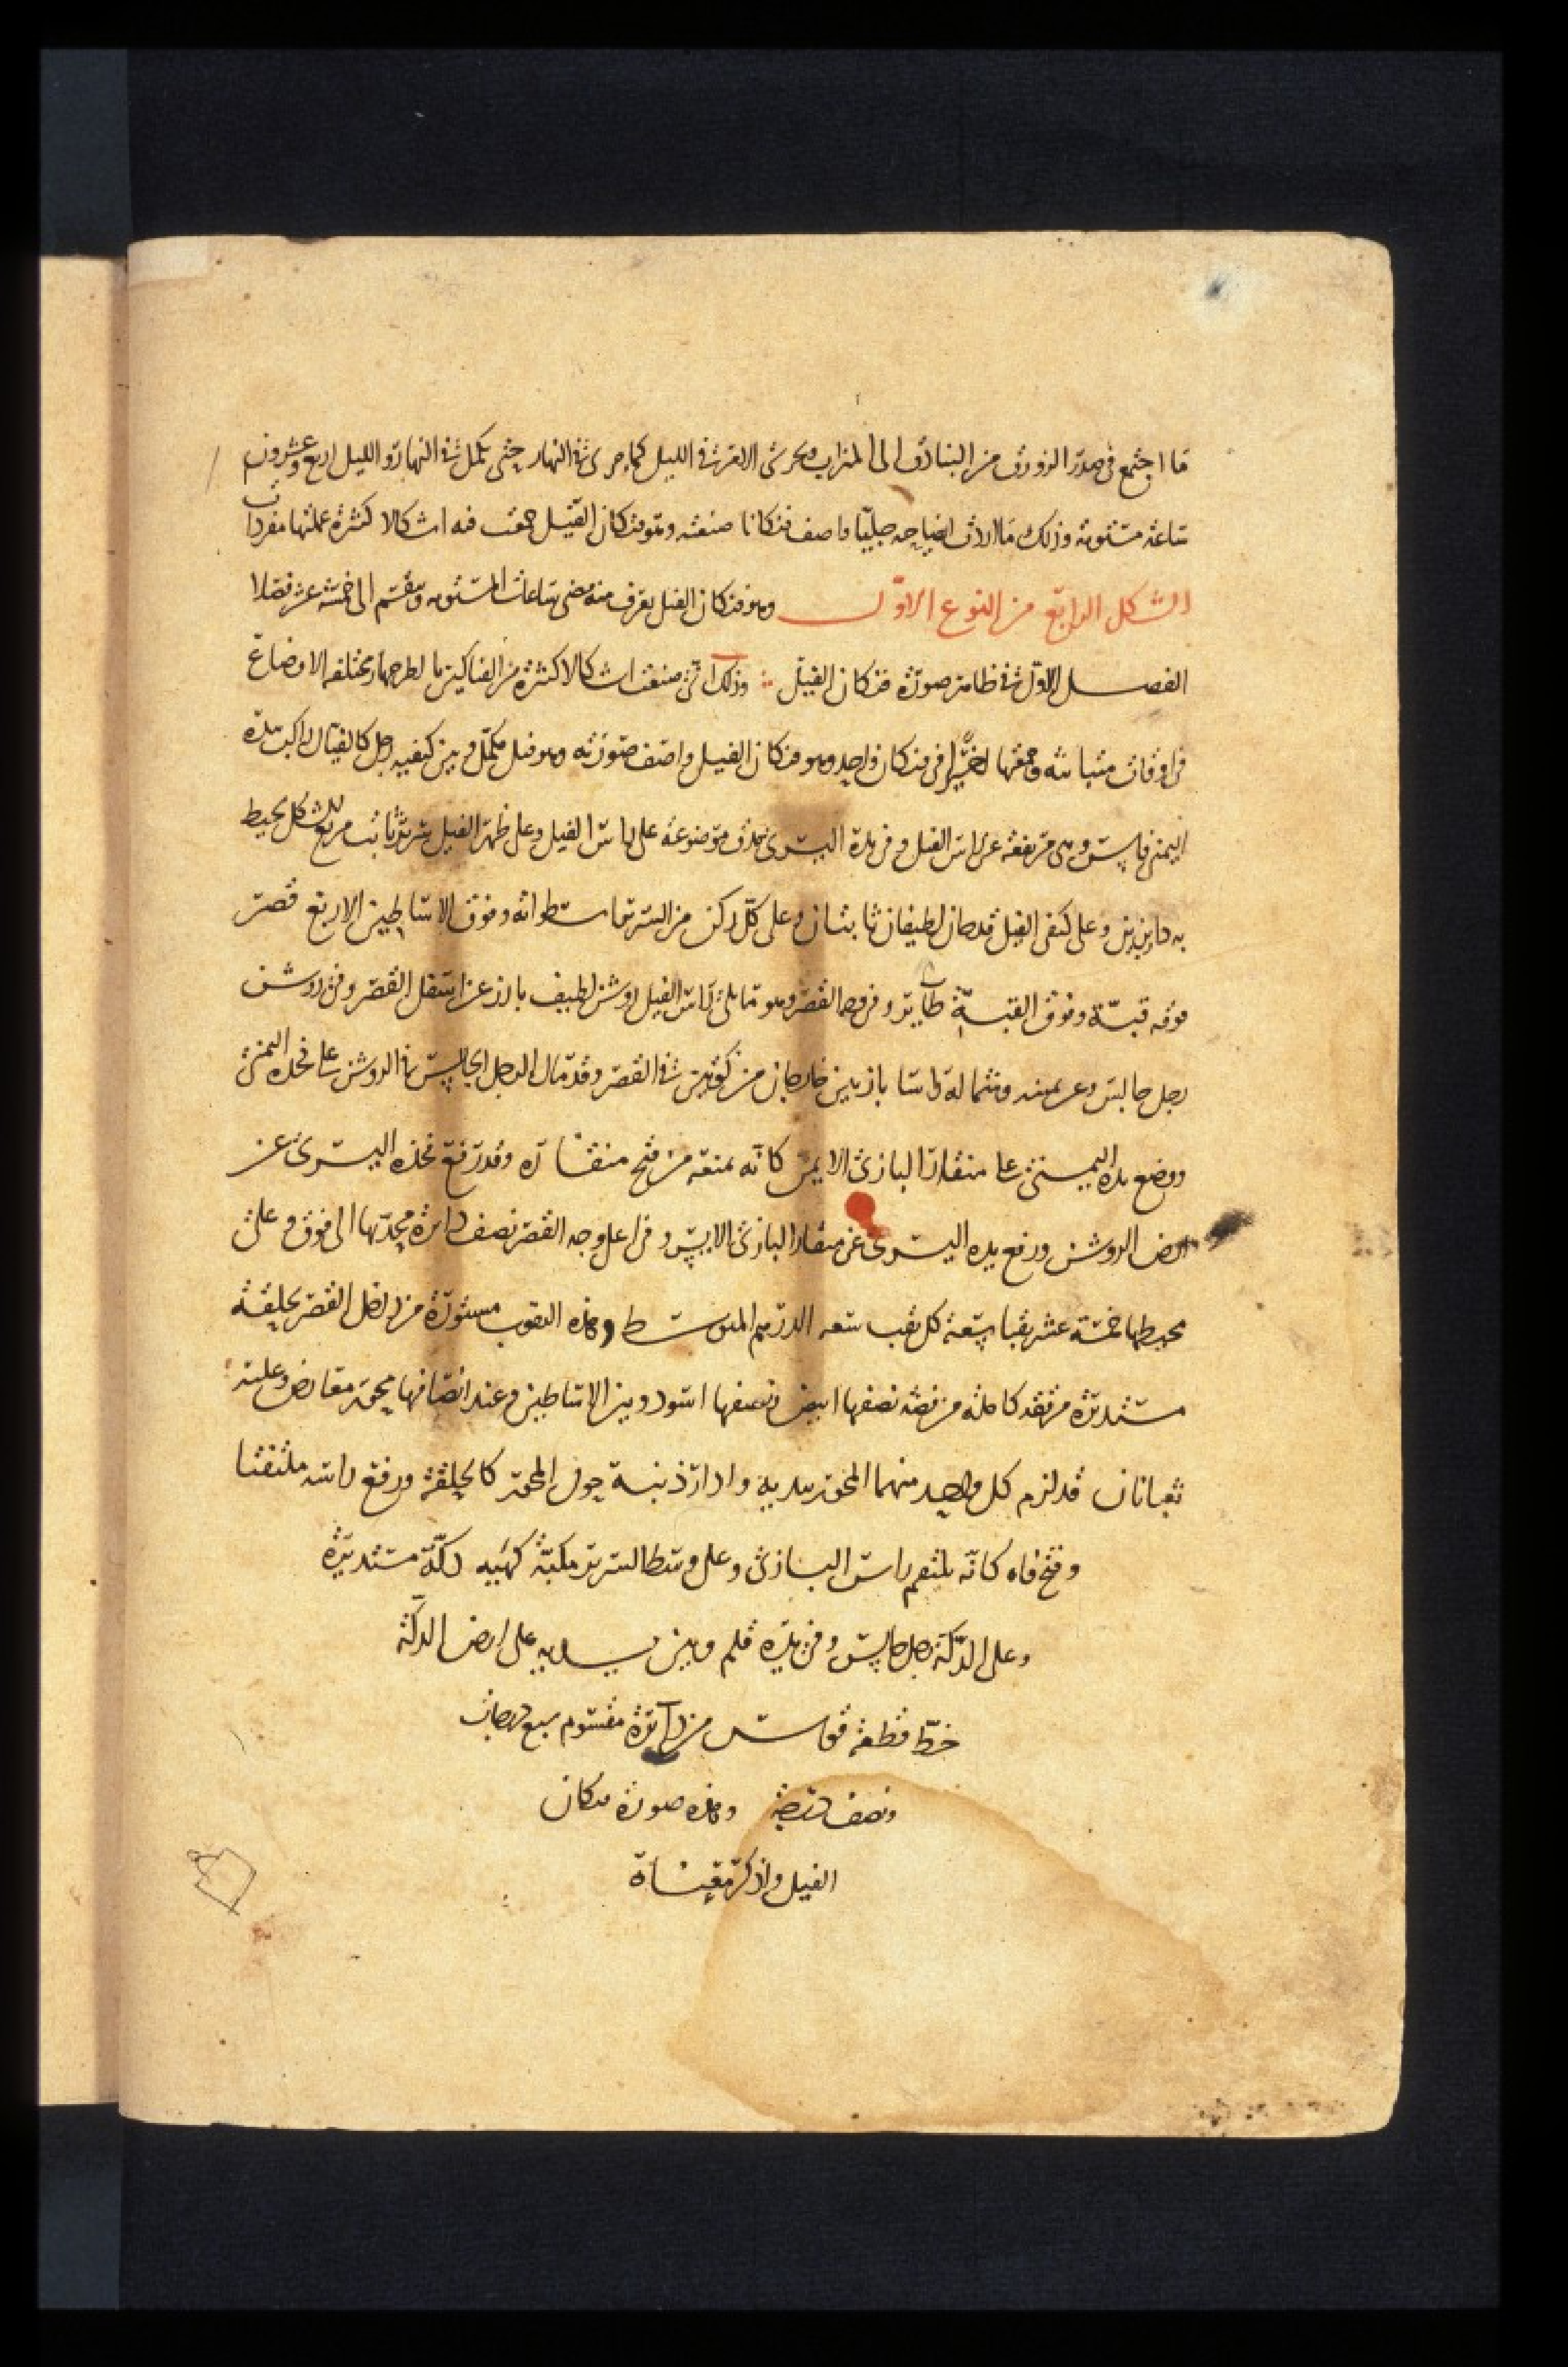 ما اجتمع في صدر الزورق من البنادق الى الميزاب ويجري الامر في الليل كما جرى في النهار حتى يكمل في النهار والليل اربع وعشرون
ساعة مستوية وذلك ما اردت ايضاحه جليا واصف فنكانا صنعته وهو فنكان الفيل جمعت فيه اشكالا كثيرة عملتها مفردات
الشكل الرابع من النوع الاول وهو فنكان الفيل يعرف منه مضى ساعات المستويه وينقسم الى خمسة عشر فصلا
الفصل الاول في ظاهر صورة فنكان الفيل وذلك انني صنعت اشكالا كثيرة من الفناكين بالطرجهار مختلفه الاوضاع
في اوقات متباينه وجمعتها اخيرا في فنكان واحد وهو فنكان الفيل واصف صورته وهو فيل مكمل وبين كتفيه رجل كالفيال راكب بيده
اليمنى فاس وهي مرتفعة عن راس الفيل وفي يده اليسرى مدقه موضوعة على راس الفيل وعلى ظهر الفيل سرير ثابت مربع الشكل يحيط
به درابزين وعلى كتفي الفيل قدحان لطيفان ثابتان وعلى كل ركن من السرير اسطوانه وفوق الاساطين الاربع قصر
فوقه قبة وفوق القبة طاير وفي وجه القصر وهو مما يلي راس الفيل روشن لطيف بارز عن اسفل القصر وفي روشن
رجل جالس وعن يمينه وشماله راسا بازيين خارجان من كوتين في القصر وقد مال الرجل الجالس في الروشن على فخذه اليمنى
ووضع يده اليمنى على منقار البازي الايمن كانه يمنعه من فتح منقاره وقد رفع فخذه اليسرى عن
ارض الروشن ورفع يده اليسرى عن منقار البازي الايسر وفي اعلى وجه القصر نصف دائرة محدبها الى فوق وعلى
محيطها خمسة عشر ثقبا سعة كل ثقب سعه الدرهم المتوسط وهذه الثقوب مستورة من داخل القصر بحلقة
مستديرة من فضه نصفها ابيض ونصفها اسود وبين الاساطين وعند انصافها محور معارض وعليه
ثعبانان قد لزم كل واحد منهما المحور بيديه وادار ذنبه حول المحور كالحلقة ورفع راسه ملتفتا
وفتح فاه كانه يلتقم راس البازي وعلى وسط السرير مكبة كهيه دكة مستديرة
وعلى الدكة رجل جالس وفي يده قلم وبين يديه على ارض الدكة
خط قطعة قوس من دايرة مقسوم سبع درجات
ونصف درجة وهذه صورة فنكان
الفيل واذكر معناه